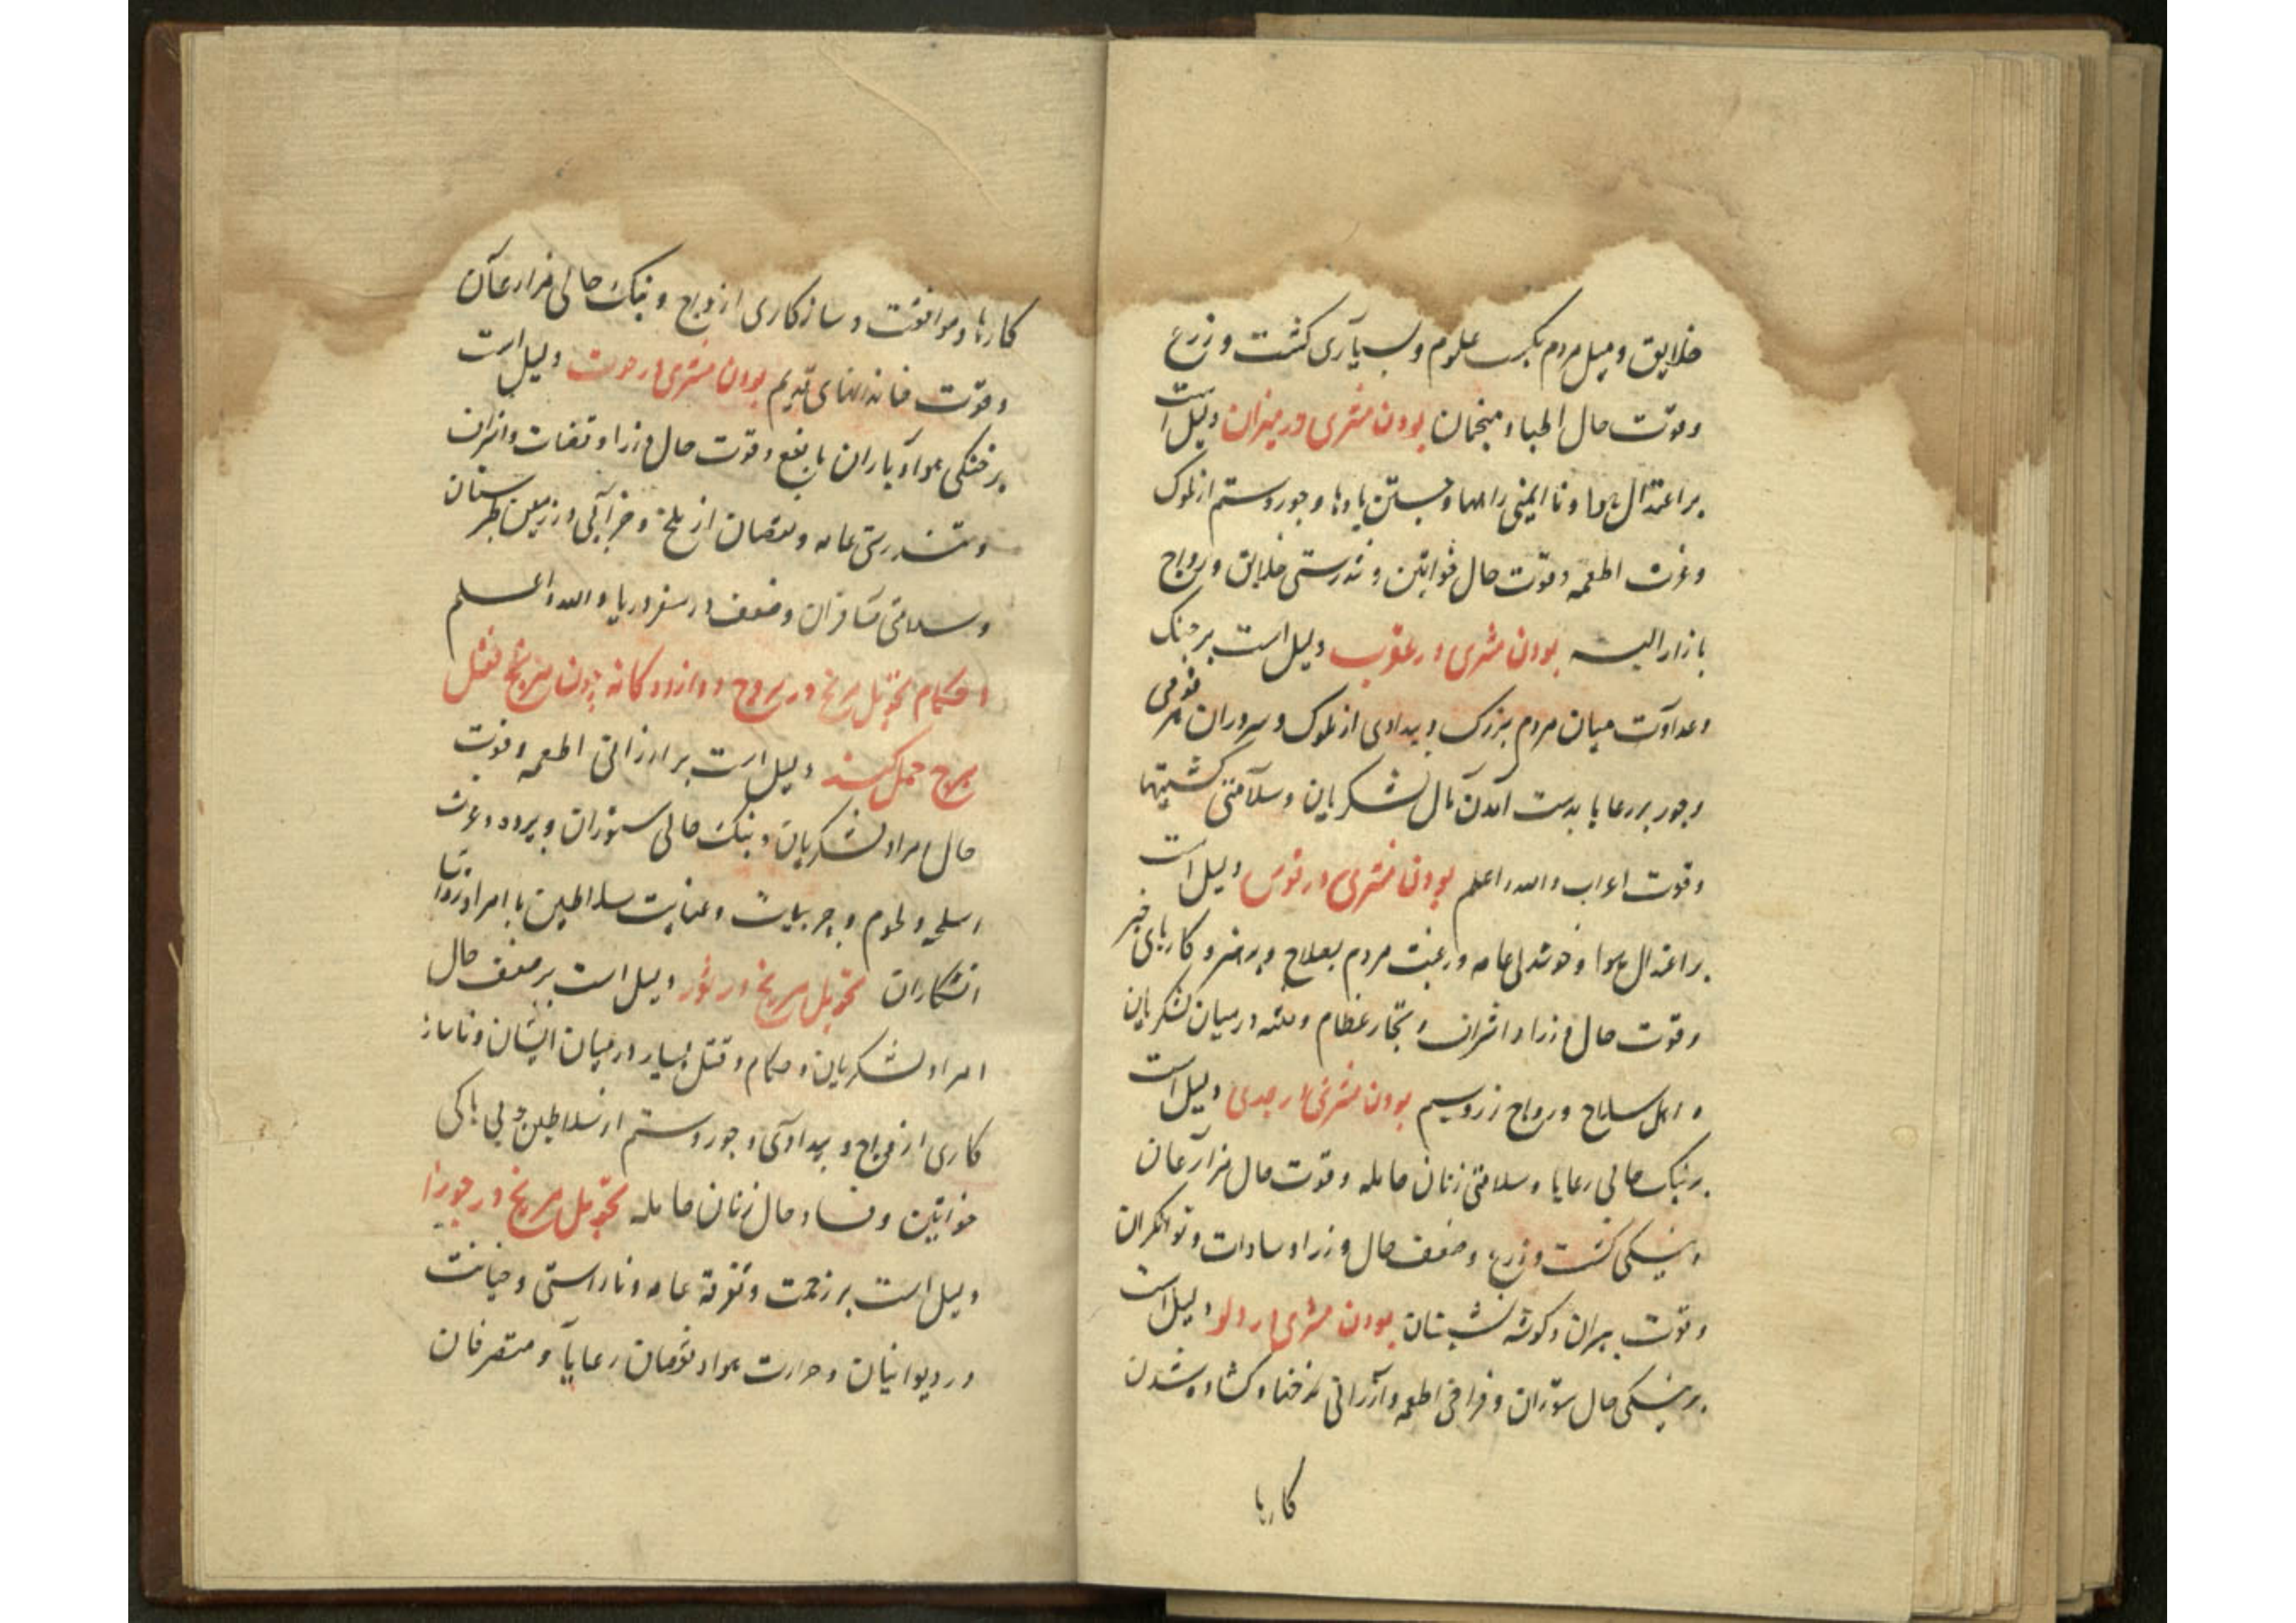 خلایق و میل مردم بکسب علوم و بسیاری کشت و زرع
و قوت حال اطبا و منجمان بودن مشتری در میزان دلیل است
بر اعتدال هوا و نا ایمنی راهها و جستن بادها و جور و ستم از ملوک
و عزت اطعمه و قوت حال خواتین و تندرستی خلایق و رواج
بازار البسه بودن مشتری در عقرب دلیل است بر جنک
و عداوت میان مردم بزرک و بیدادی از ملوک و سروران قومی
و جور بر رعایا بدست آمدن مال لشکریان و سلامتی کشتیها
و قوت اعراب والله اعلم بودن مشتری در قوس دلیل است
بر اعتدال هوا و خوشدلی عامه و رغبت مردم بصلاح و پرهیز و کارهای خیر
و قوت حال وزرا و اشراف و تجار عظام و فتنه در میان لشکریان
و اهل سلاح و رواج زر و سیم بودن مشتری در جدی دلیل است
بر نیک حالی رعایا و سلامتی زنان حامله و قوت حال مزارعان
و نیکی کشت و زرع و ضعف حال وزرا و سادات و توانکران
و قوت پیران و کوشه نشینان بودن مشتری در دلو دلیل است
بر نیکی حال ستوران و فراخی اطعمه و ارزانی نرخها و کشاده شدن
کارها
کارها و موافقت و سازکاری ازواج و نیک حالی مزارعان
و قوت خاندانهای قدیم بودن مشتری در حوت دلیل است
بر خنکی هوا و باران با نفع و قوت حال وزرا و قضات و اشراف
و تندرستی عامه و نقصان از ملخ و خرابی در زمین طبرستان
و سلامتی مسافران و ضعف در سفر دریا والله اعلم
احکام تحویل مریخ در بروج دوازده کانه چون مریخ نقل
ببرج حمل کند دلیل است بر ارزانی اطعمه و قوت
حال امرا و لشکریان و نیک حالی ستوران و برده و عزت
اسلحه و لحوم و چربیات و عنایت سلاطین با امرا و
تحویل مریخ در ثور دلیل است بر ضعف حال
امرا و لشکریان و حکام و قتل بسیار در میان ایشان و ناساز
کاری ازواج و بیدادی و جور و ستم از سلاطین و بی باکی
خواتین و فساد حال زنان حامله تحویل مریخ در جوزا
دلیل است بر زحمت و تفرقه عامه و ناراستی و خیانت
در دیوانیان و حرارت هوا و نقصان رعایا و متصرفان